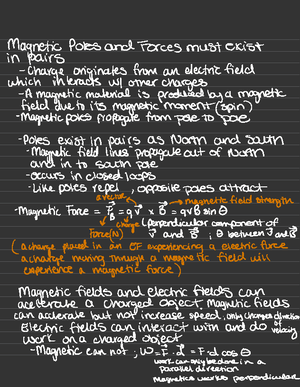 Magnetic Poles and Forces must exist
in pairs
- Charge originates from an electric field
which interacts w/ other charges
- A magnetic material is produced by a magnetic
field due to its magnetic moment (spin)
- Magnetic poles propagate from pole to pole
- Poles exist in pairs as North and South
- Magnetic field lines propagate out of North
and in to South pole
- occurs in closed loops
- Like poles repel, opposite poles attract
a vector
magnetic field strength
- Magnetic Force = F_B = q v⃗ × B⃗ = qvB sin θ
charge
Force(N)
(perpendicular component of
v⃗ and B⃗, θ between v⃗ and B⃗)
(a charge placed in an EF experiencing a electric force
a charge moving through a magnetic field will
experience a magnetic force)
Magnetic fields and electric fields can
accelerate a charged object, magnetic fields
can accelerate but not increase speed, only changes direction
of velocity
Electric fields can interact with and do
work on a charged object
- Magnetic can not; W = F⃗ · d⃗ = F·d cos θ
work can only be done in a
parallel direction
magnetic works perpendicular